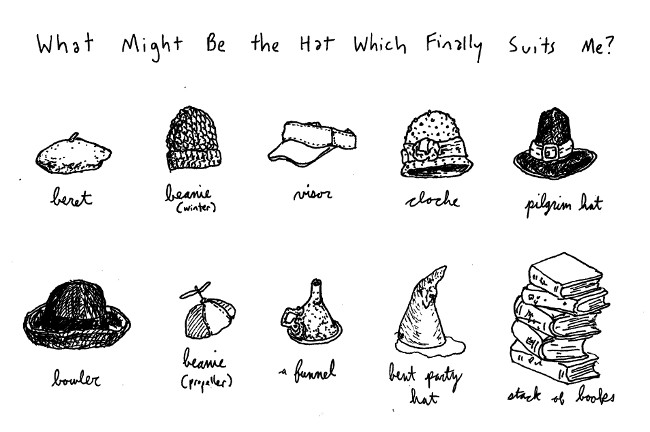 What Might Be the Hat Which Finally Suits Me?
beret
beanie
(winter)
visor
cloche
pilgrim hat
bowler
beanie
(propeller)
a funnel
bent party
hat
stack of books